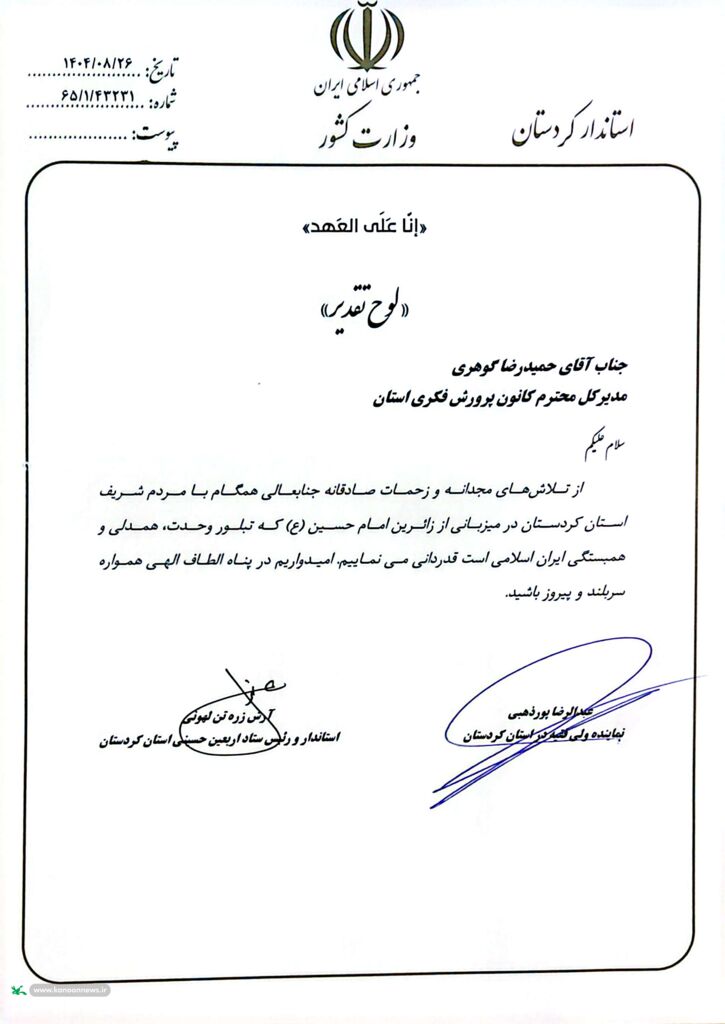 جمهوری اسلامی ایران
وزارت کشور
استاندار کردستان
تاریخ: ۱۴۰۴/۰۸/۲۶
شماره: ۶۵/۱/۴۳۲۳۱
پیوست:
«إنّا عَلَی العَهد»
«لوح تقدیر»
جناب آقای حمیدرضا گوهری
مدیرکل محترم کانون پرورش فکری استان
سلام علیکم
از تلاش‌های مجدانه و زحمات صادقانه جنابعالی همگام با مردم شریف
استان کردستان در میزبانی از زائرین امام حسین (ع) که تبلور وحدت، همدلی و
همبستگی ایران اسلامی است قدردانی می نماییم. امیدواریم در پناه الطاف الهی همواره
سربلند و پیروز باشید.
عبدالرضا پورذهبی
نماینده ولی فقیه در استان کردستان
آرش زره تن لهونی
استاندار و رئیس ستاد اربعین حسینی استان کردستان
www.kanoonnews.ir